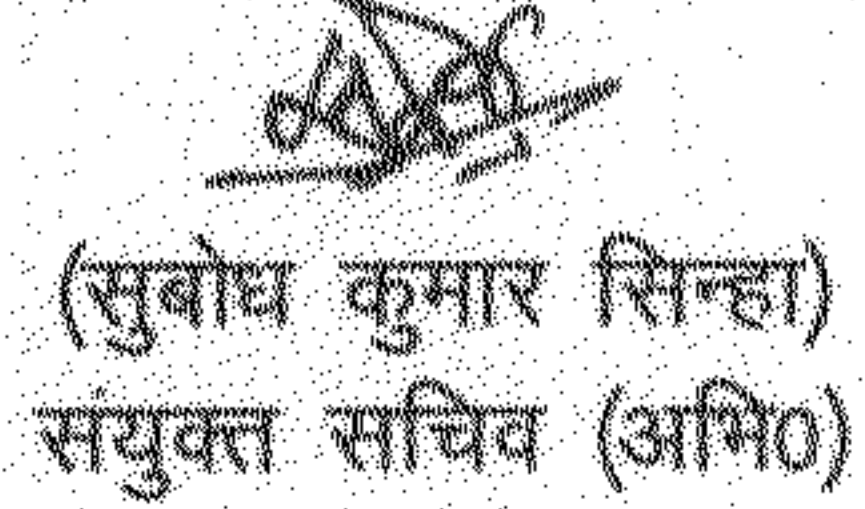 (सुबोध कुमार सिन्हा)
संयुक्त सचिव (अभि०)